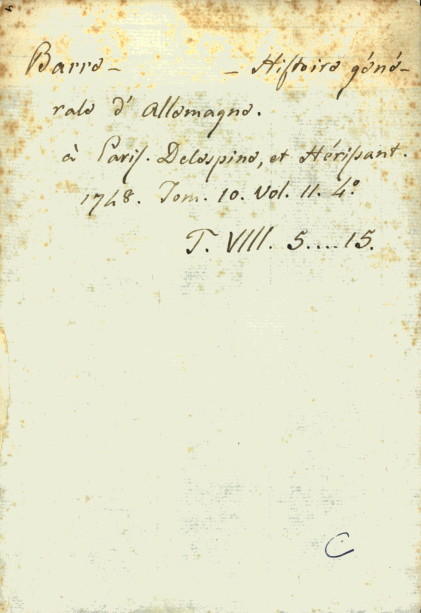 Barre – – Histoire géné-
rale d'Allemagne.
à Paris. Delespine, et Hérissant.
1748. Tom. 10. Vol. 11. 4°
T. VIII. 5....15.
C